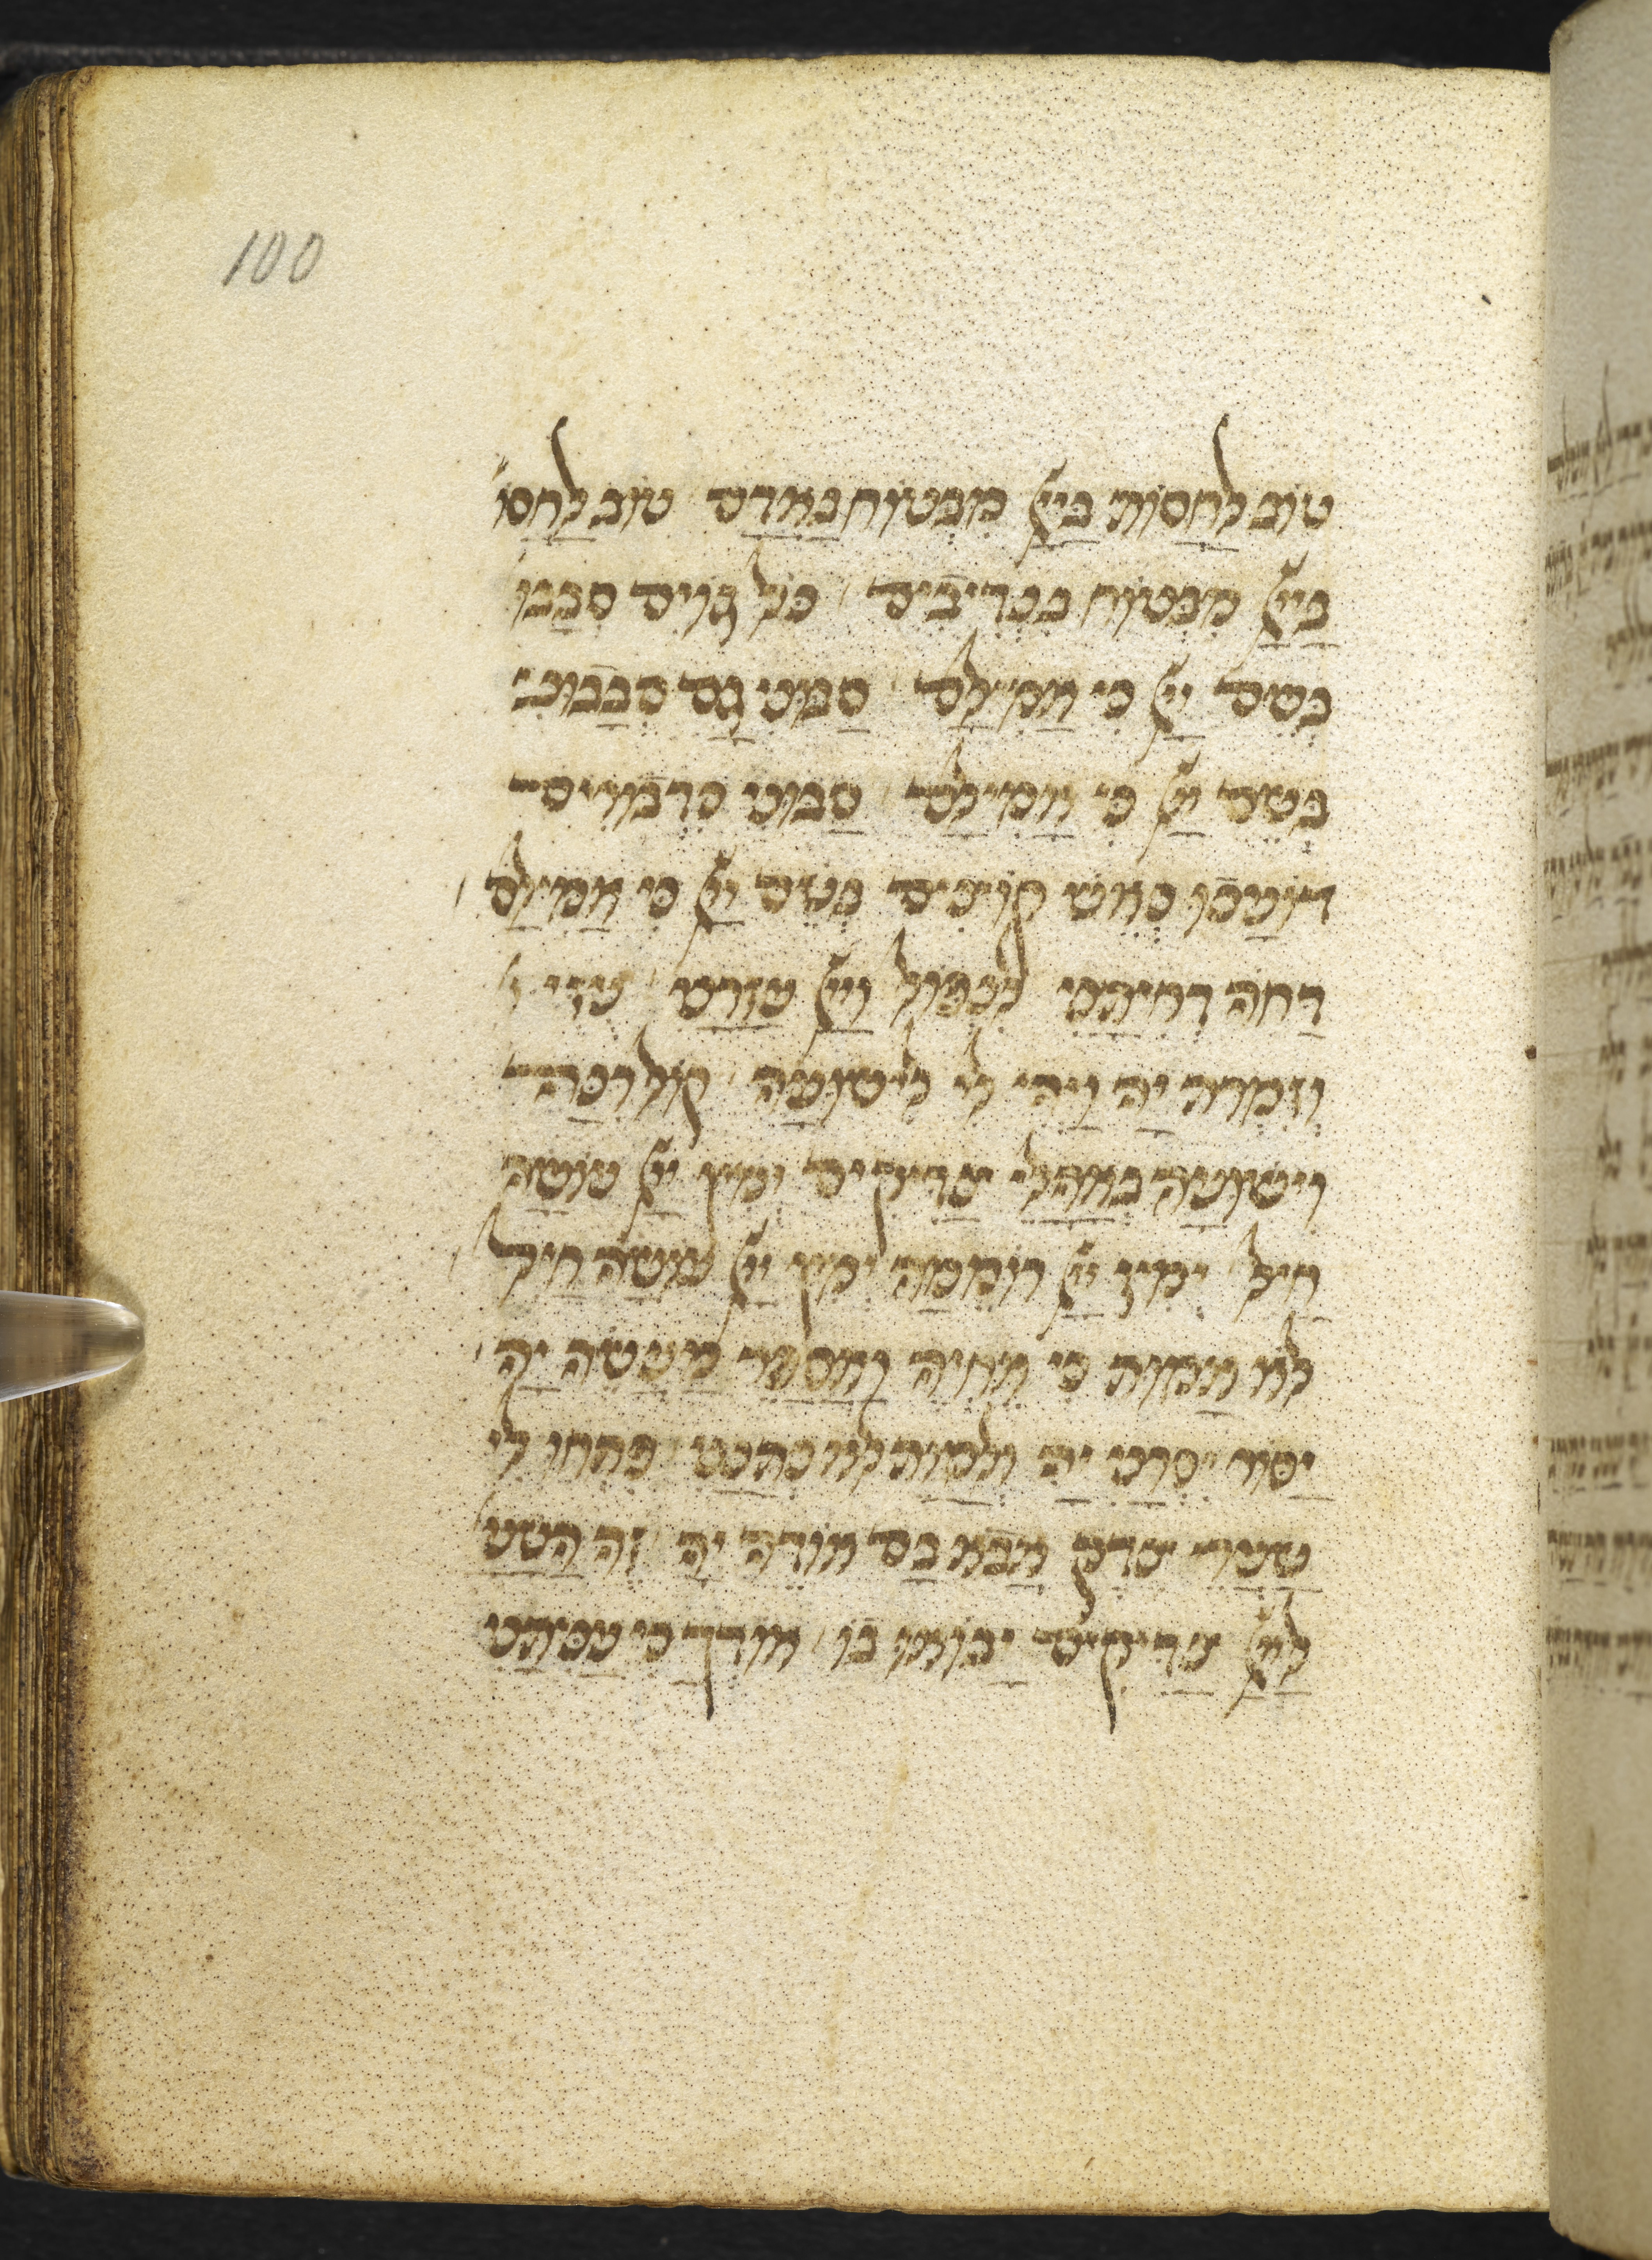 100
טוב לחסות ביי מבטוח באדם טוב לחסו'
ביי מבטוח בנדיבים כל גוים סבבו
בשם יי כי אמילם סבוני גם סבבוני
בשם יי כי אמילם סבוני כדבורים
דועכו כאש קוצים בשם יי כי אמילם
דחה דחיתני לנפול ויי עזרני עזי
וזמרת יה ויהי לי לישועה קול רנה
וישועה באהלי צדיקים ימין יי עושה
חיל ימין יי רוממה ימין יי עושה חיל
לא אמות כי אחיה ואספר מעשה יה
יסור יסרני יה ולמות לא נתנני פתחו לי
שערי צדק אבא בם אודה יה זה השע'
ליי צדיקים יבואו בו אודך כי עניתני